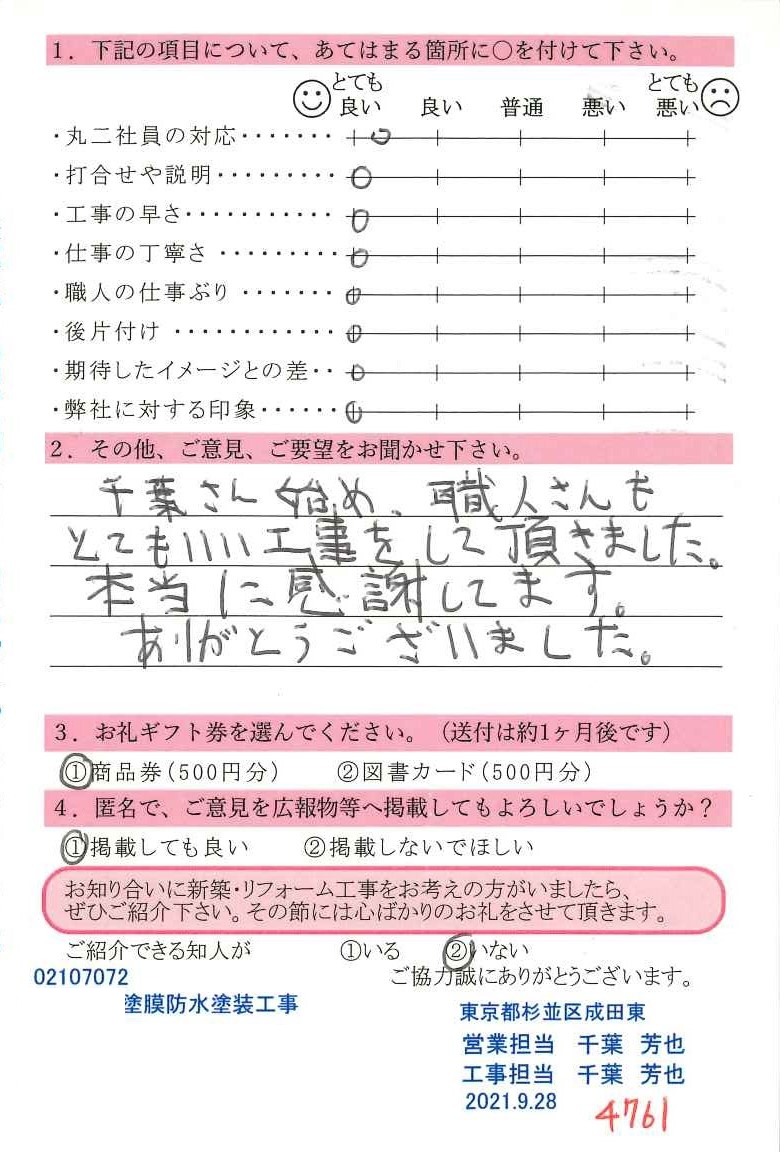 1．下記の項目について、あてはまる箇所に○を付けて下さい。
とても とても
良い 良い 普通 悪い 悪い
・丸二社員の対応・・・・・・・
・打合せや説明・・・・・・・・・
・工事の早さ・・・・・・・・・・・
・仕事の丁寧さ・・・・・・・・・
・職人の仕事ぶり・・・・・・・
・後片付け・・・・・・・・・・・・
・期待したイメージとの差・・
・弊社に対する印象・・・・・・
2．その他、ご意見、ご要望をお聞かせ下さい。
千葉さん始め、職人さんも
とてもいいい工事をして頂きました。
本当に感謝してます。
ありがとうございました。
3．お礼ギフト券を選んでください。（送付は約1ヶ月後です）
①商品券（500円分） ②図書カード（500円分）
4．匿名で、ご意見を広報物等へ掲載してもよろしいでしょうか？
①掲載しても良い ②掲載しないでほしい
お知り合いに新築・リフォーム工事をお考えの方がいましたら、
ぜひご紹介下さい。その節には心ばかりのお礼をさせて頂きます。
ご紹介できる知人が ①いる ②いない
02107072 ご協力誠にありがとうございます。
塗膜防水塗装工事 東京都杉並区成田東
営業担当 千葉 芳也
工事担当 千葉 芳也
2021.9.28
4761